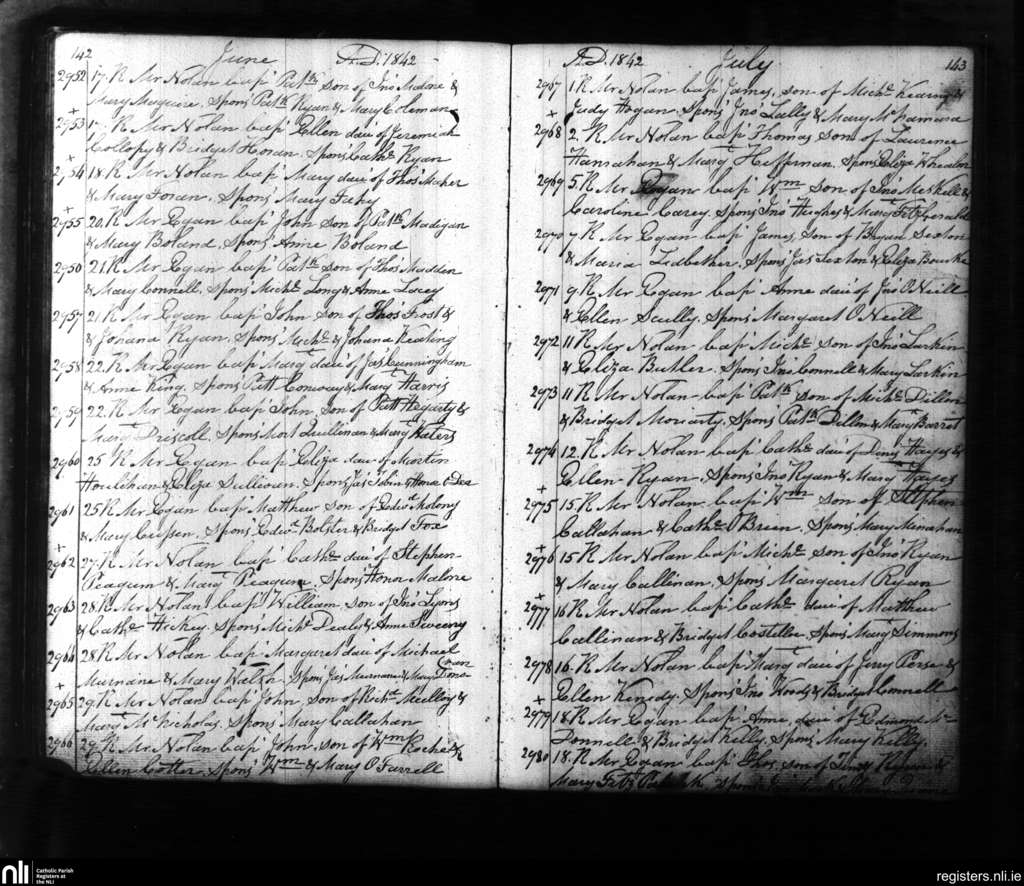 142 June A.D. 1842
2952 17. R Mr Nolan bap.d Patk son of Jno Malone &
Mary Maguire, Spons Patk Ryan & Mary Coleman
2953 17. R Mr Nolan bap.d Ellen daur of Jeremiah
Collopy & Bridget Honan. Spons Cathe Ryan
2954 18. R Mr Nolan bap.d Mary daur of Thos Maher
& Mary Foran. Spons Mary Fahy
2955 20. R Mr Egan bap.d John son of Patk Madigan
& Mary Boland. Spons Anne Boland
2956 21 R Mr Egan bap.d Patk son of Thos Madden
& Mary Connell, Spons Michl Long & Anne Lacey
2957 21. R Mr Egan bap.d John son of Thos Frost &
& Johana Ryan. Spons Michl & Johana Keating
2958 22. R Mr Egan bap.d Margt daur of Jas Cunningham
& Anne King, Spons Patt Conway & Mary Harris
2959 22. R Mr Egan bap.d John, son of Patt Hegarty &
Margt Driscoll. Spons Mort Quillinan & Margt Waters
2960 25 R Mr Egan bap.d Eliza daur of Martin
Houlihan & Eliza Sullivan. Spons Jas Tobin & Hona O Dea
2961 25 R Mr Egan bap.d Matthew son of Edwd Molony
& Mary Cussen. Spons Edwd Bolster & Bridget Fox
2962 27. R Mr Nolan bap.d Cathe daur of Stephen
Peagum & Margt Peagum. Spons Honn Malone
2963 28. R Mr Nolan bap.d William, son of Jno Lyons
& Cathe Hickey. Spons Michl Dealy & Anne Sweeny
2964 28 R Mr Nolan bap.d Margaret daur of Michael
Murnane & Mary Walsh. Spons Jas Murnane & Mary Dono-van
2965 29. R Mr Nolan bap.d John, son of Richd Mullay &
Margt McNicholas. Spons Mary Callahan
2966 29. R Mr Nolan bap.d John, son of Wm Roche &
Ellen Cotter. Spons Wm & Mary O Farrell
A.D. 1842 July 143
2967 1 R Mr Nolan bap.d James, son of Michl &
Judy Hogan. Spons Jno Lally & Mary McNamara
2968 2. R Mr Nolan bap.d Thomas son of Laurence
Hanrahan & Margt Heffernan. Spons Eliza Whealon
2969 5. R Mr Egan bap.d Wm son of Jno Meskell &
Caroline Carey. Spons Jno Hughes & Mary Fitzgerald
2970 7. R Mr Egan bap.d James, son of Bryan Sexton
& Maria Ledbether. Spons Jas Sexton & Eliza Bourke
2971 9. R Mr Egan bap.d Anne daur of Jno O Neill
& Ellen Scully. Spons Margaret O Neill
2972 11 R Mr Nolan bap.d Michl son of Jno Larkin
& Eliza Butler. Spons Jno Connell & Mary Larkin
2973 11 R Mr Nolan bap.d Patk son of Michl Dillon
& Bridget Moriarty. Spons Patk Dillon & Mary Barrett
2974 12. R Mr Nolan bap.d Cathe daur of Denis Hayes &
Ellen Ryan. Spons Jno Ryan & Margt Hayes
2975 15. R Mr Nolan bap.d Wm son of Stephen
Callahan & Cathe O'Brien. Spons Mary Minahan
2976 15 R Mr Nolan bap.d Michl son of Jno Ryan
& Mary Callinan. Spons Margaret Ryan
2977 16 R Mr Nolan bap.d Cathe daur of Matthew
Callinan & Bridget Costelloe. Spons Margt Simmons
2978 16. R Mr Nolan bap.d Margt daur of Jerry Perse &
Ellen Kenedy. Spons Jno Woods & Bridget Connell
2979 18. R Mr Egan bap.d Anne, daur of Edmond Mc
Donnell & Bridget Kelly. Spons Mary Kelly.
2980 18. R Mr Egan bap.d Thos son of
Mary Fitz Patrick Spons
nli
Catholic Parish
Registers at
the NLI
registers.nli.ie